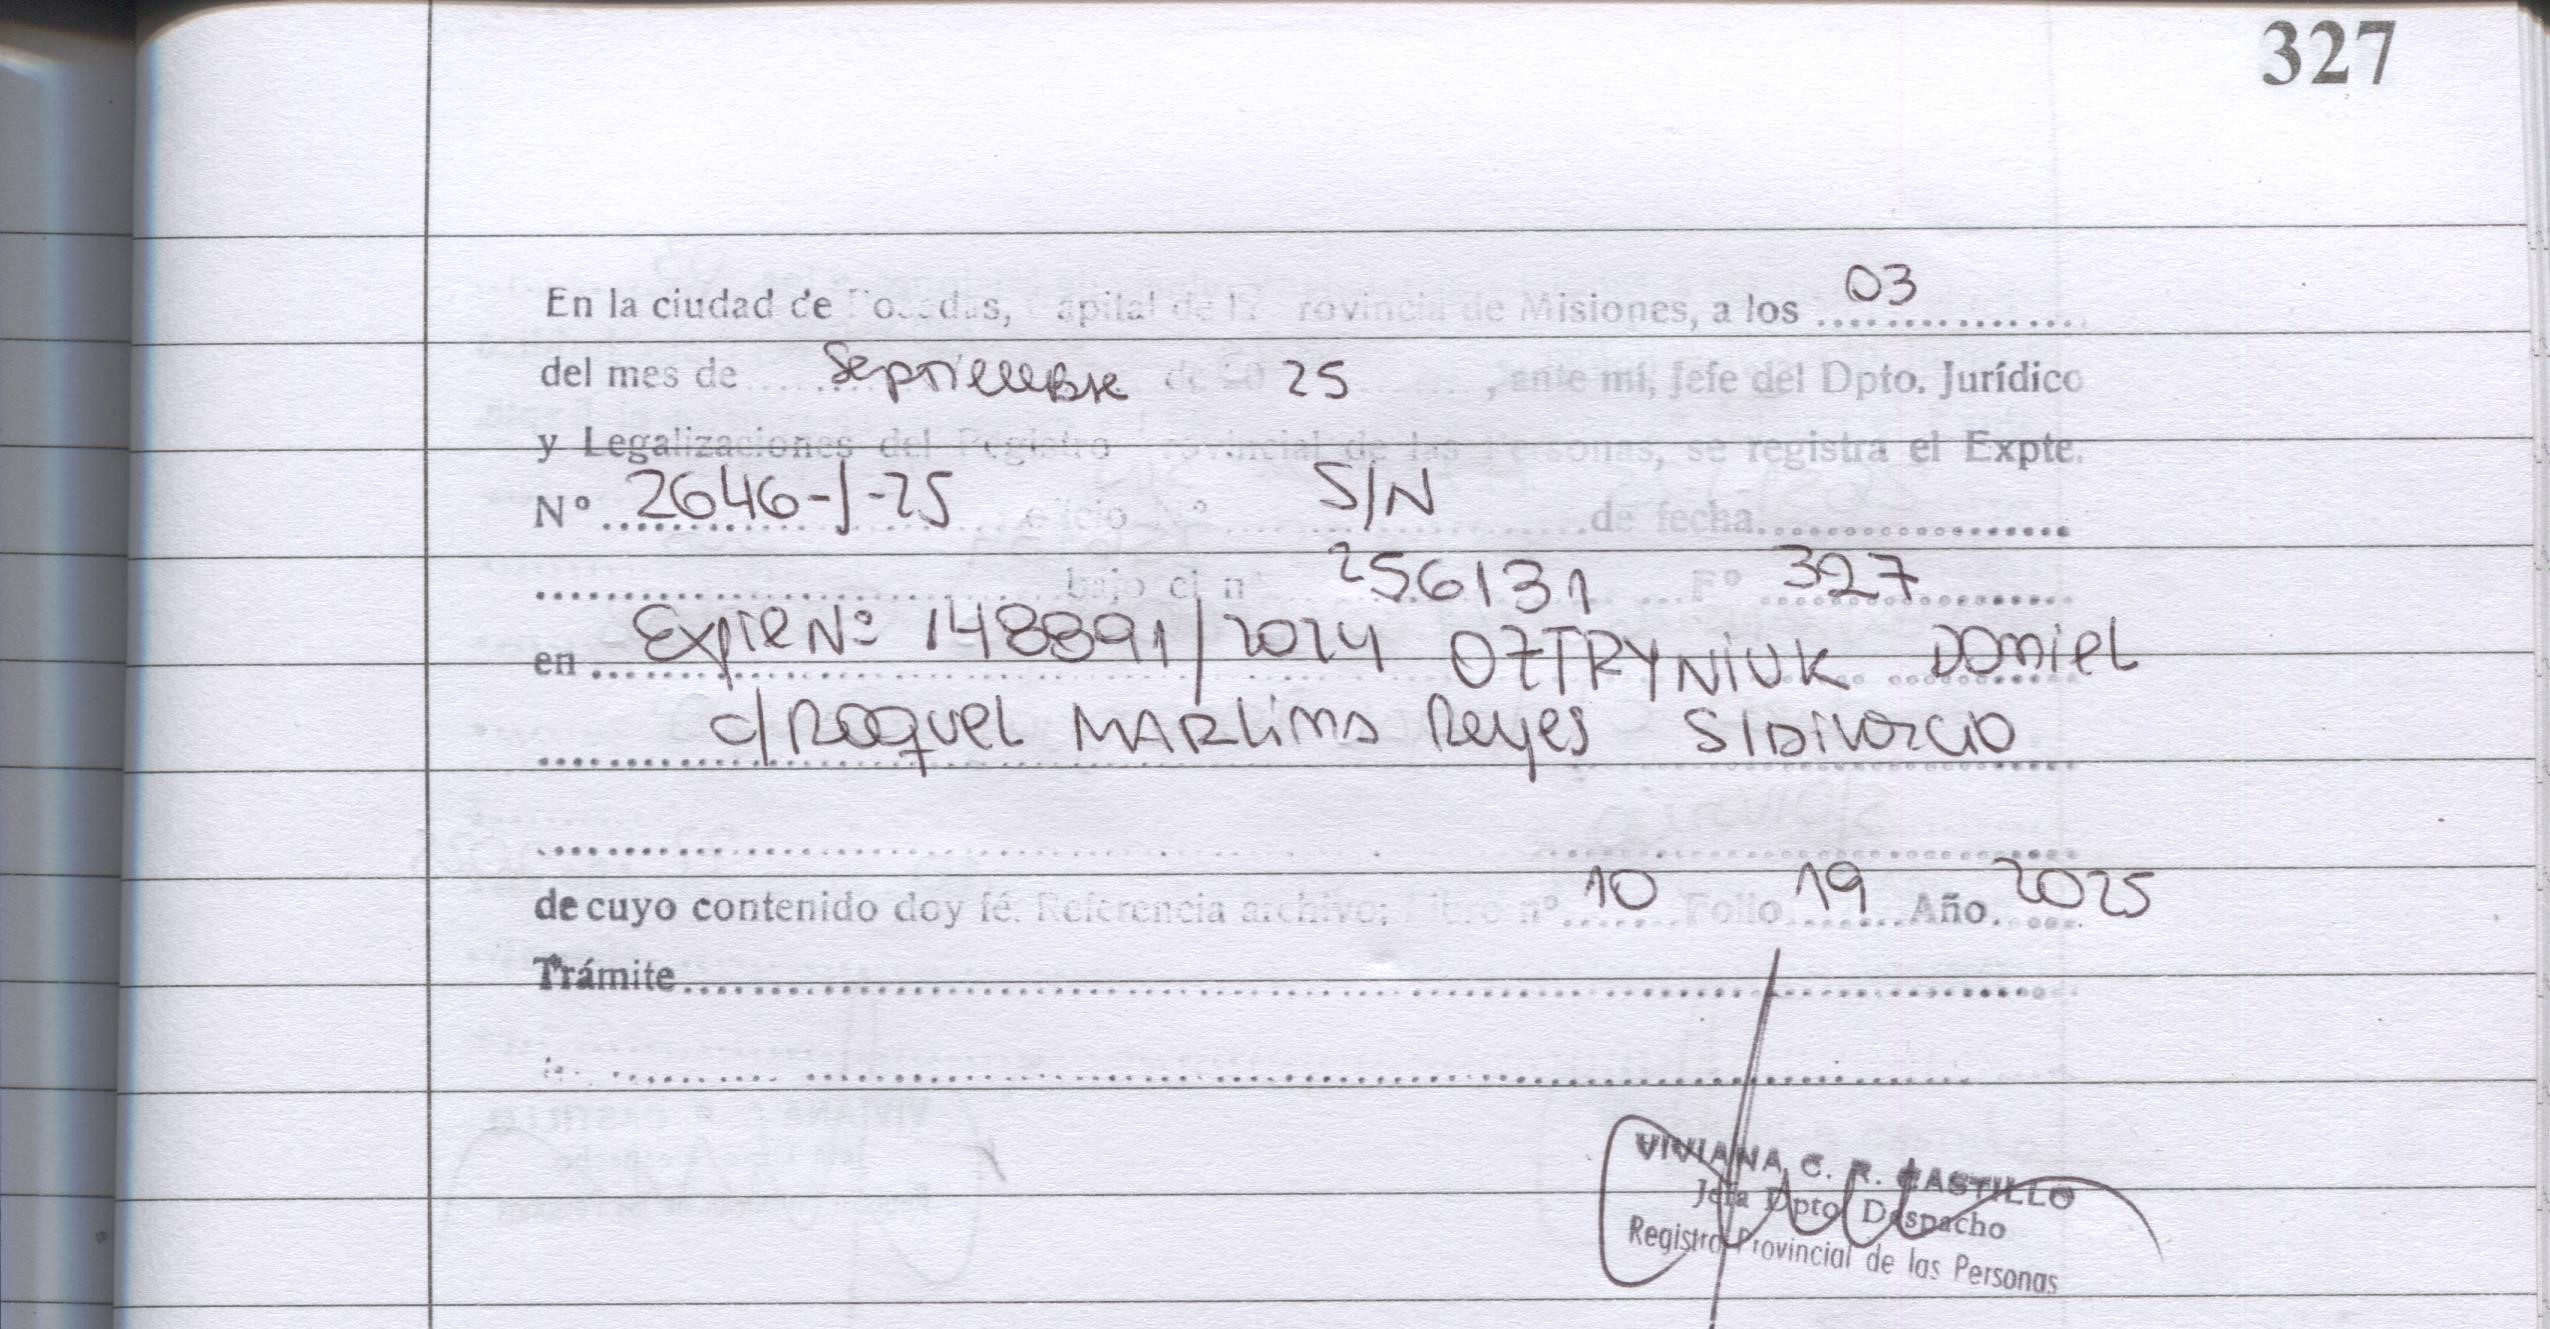 327
En la ciudad de Posadas, Capital de la Provincia de Misiones, a los 03
del mes de Septiembre de 20 25, ante mí, Jefe del Dpto. Jurídico
y Legalizaciones del Registro Provincial de las Personas, se registra el Expte.
Nº 2646-J-25 oficio Nº S/N de fecha
bajo el nº 256131 Fº 327
en Expte Nº 148891/2024 OZTRYNIUK Daniel
c/Raquel MARLINA Reyes S/Divorcio
de cuyo contenido doy fé. Referencia archivo: Libro nº 10 Folio 19 Año 2025
Trámite
VIVIANA C. R. CASTILLO
Jefa Dpto Despacho
Registro Provincial de las Personas